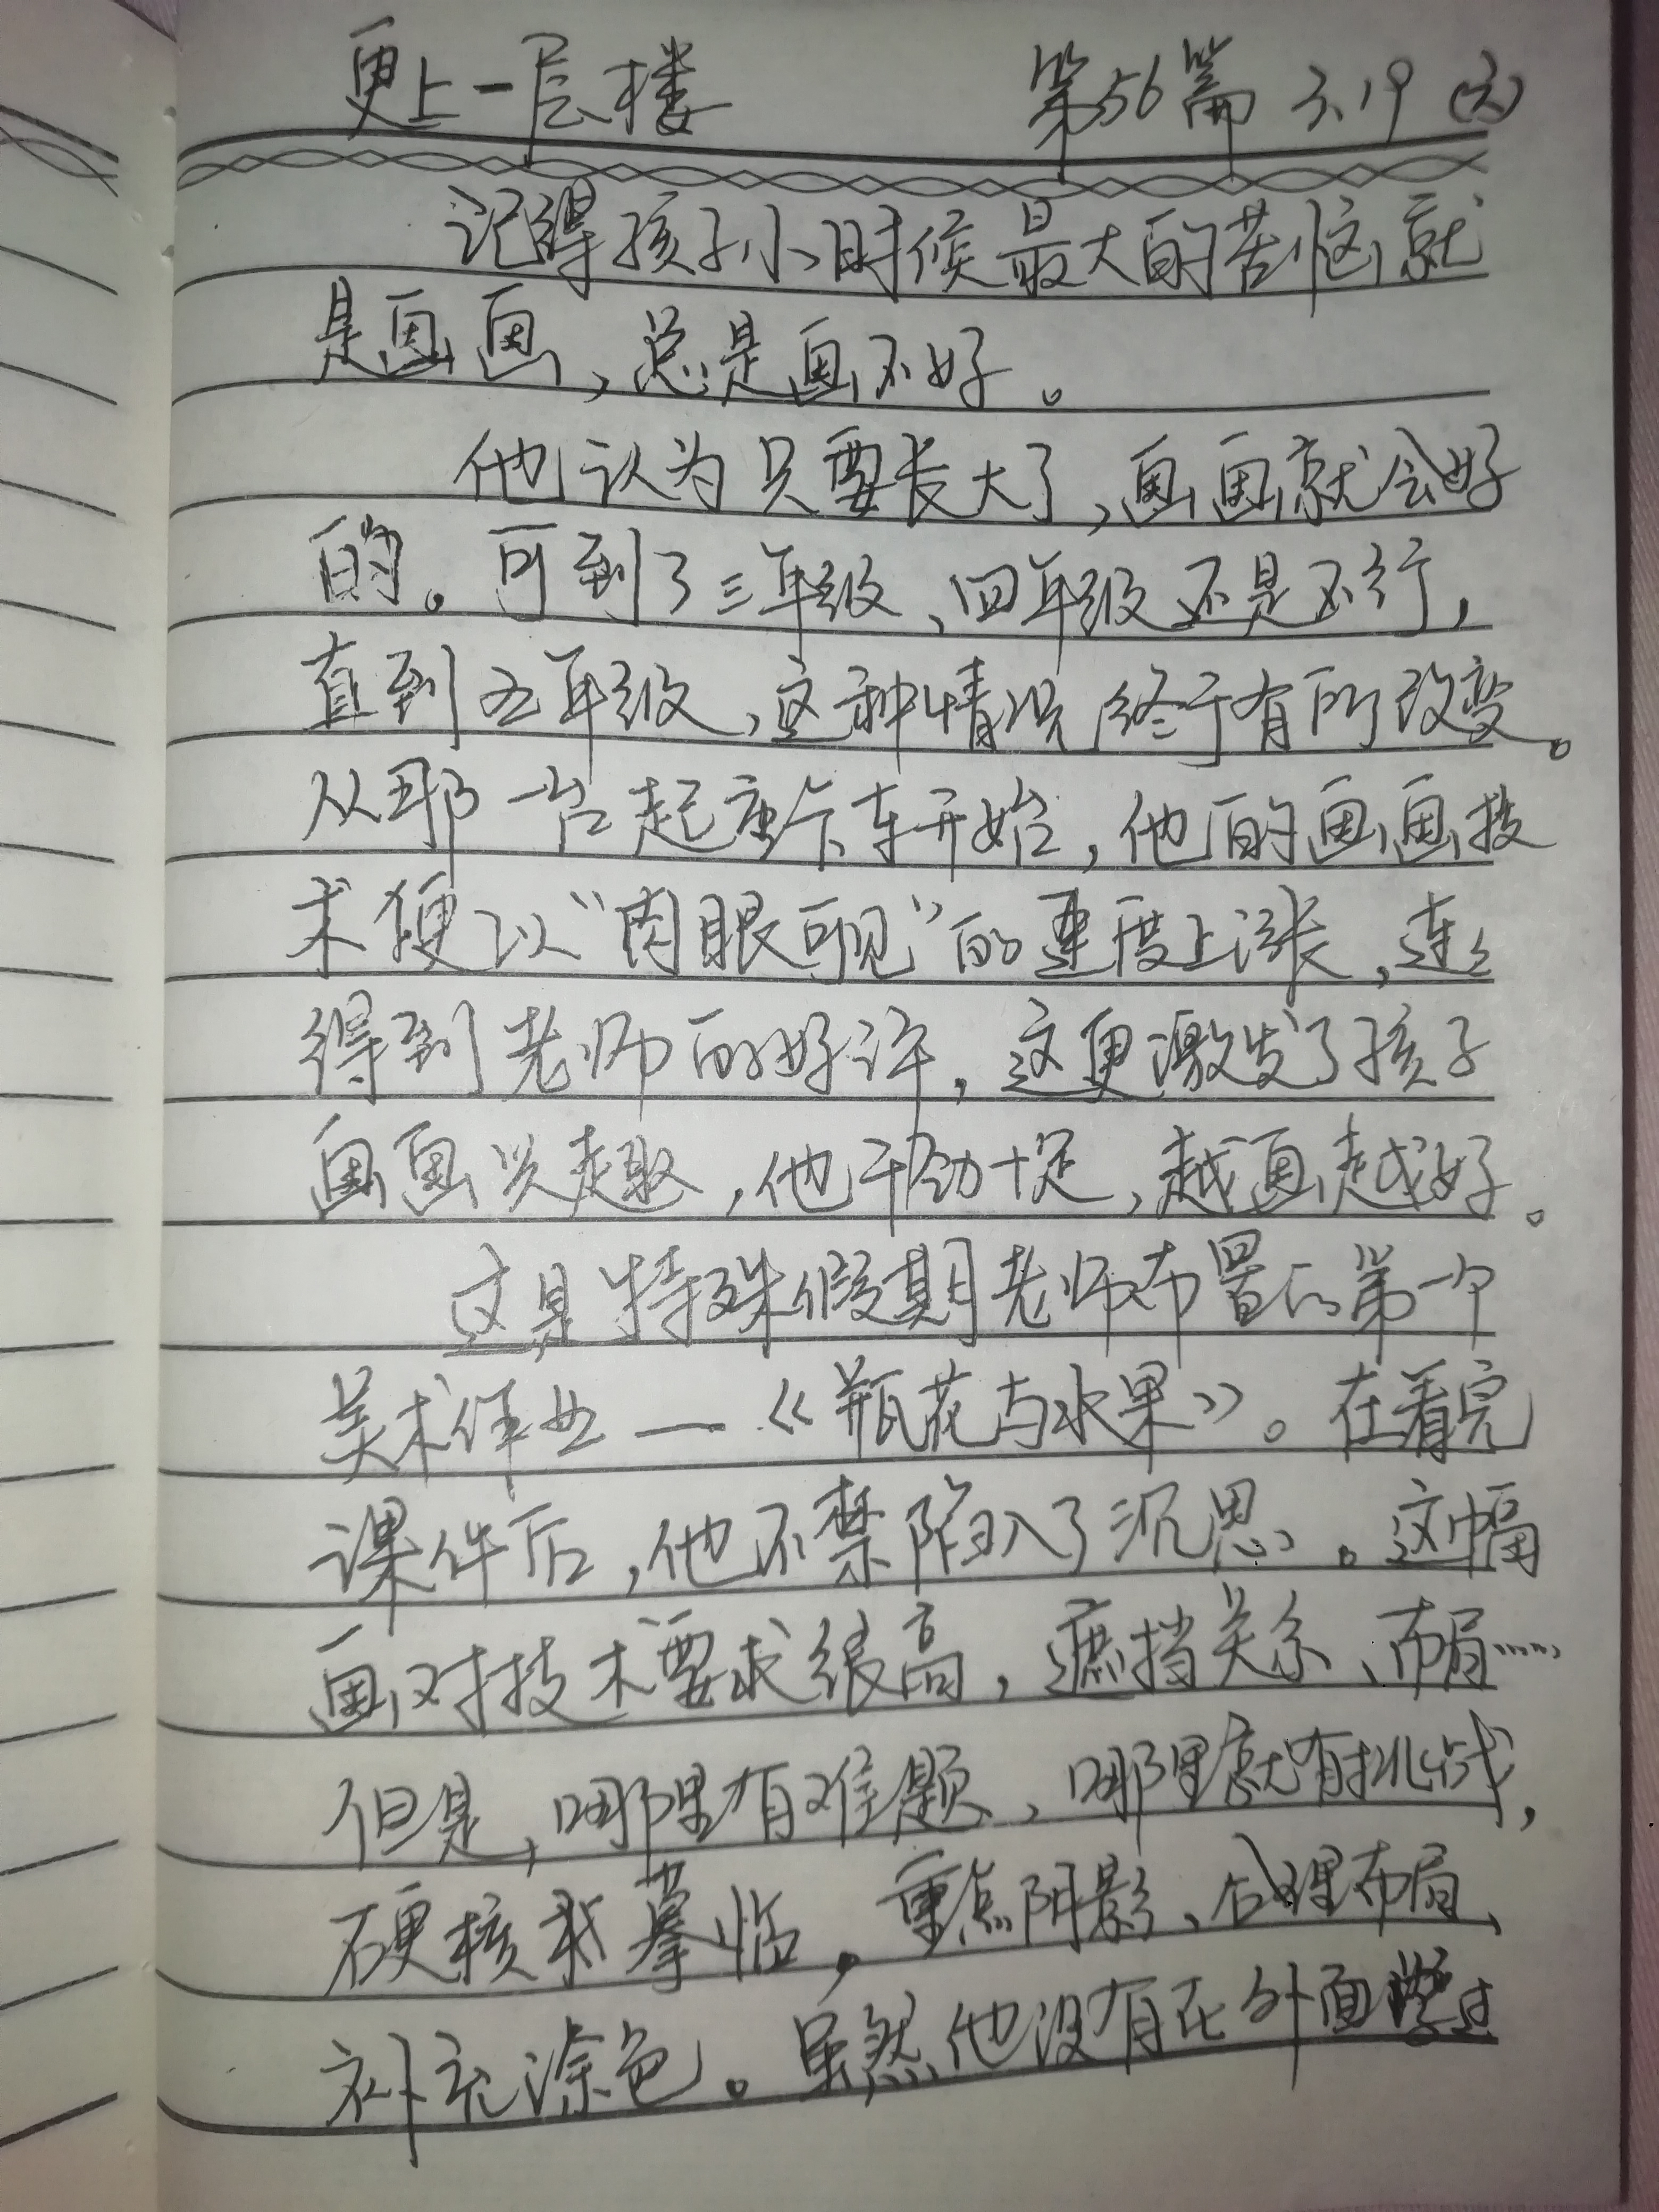 更上一层楼 第56篇 3.19 (六)
记得孩子小时候最大的苦恼就
是画画,总是画不好。
他认为只要长大了,画画就会好
的。可到了三年级、四年级还是不行,
直到五年级,这种情况终于有所改变。
从那一台起重卡车开始,他的画画技
术便以“肉眼可见”的速度上涨,连连
得到老师的好评,这更激发了孩子
画画兴趣,他干劲十足,越画越好。
这是特殊假期老师布置的第一个
美术作业—《瓶花与水果》。在看完
课件后,他不禁陷入了沉思。这幅
画对技术要求很高,遮挡关系、布局……
但是,哪里有难题、哪里就有挑战,
硬核我摹临,重点阴影、合理布局、
补充涂色。虽然他没有在外面学过